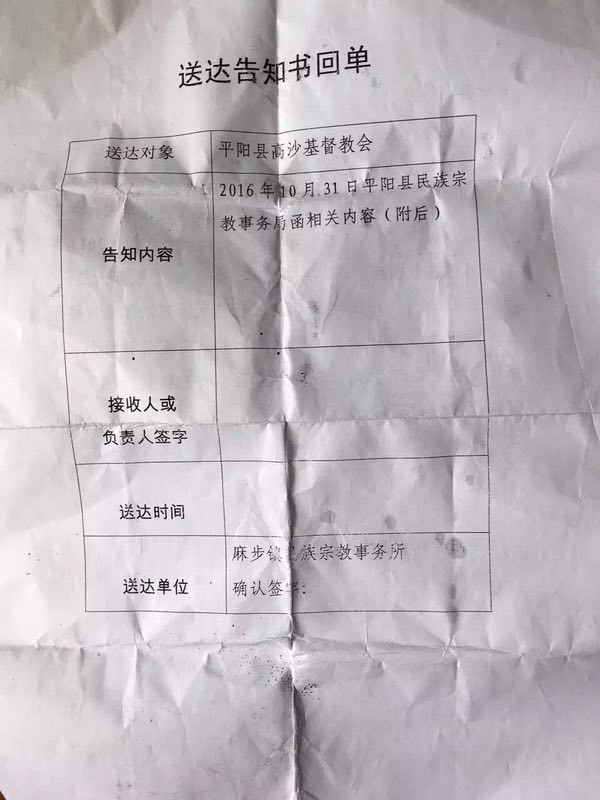 送达告知书回单
送达对象
平阳县高沙基督教会
告知内容
2016年10月31日平阳县民族宗
教事务局函相关内容（附后）
接收人或
负责人签字
送达时间
送达单位
麻步镇 族宗教事务所
确认签字：